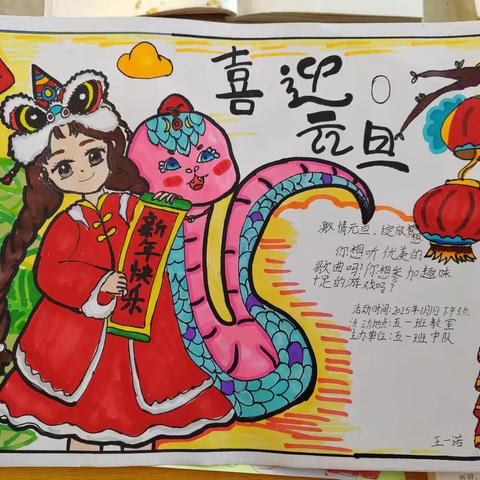 喜迎
元旦
新年快乐
激情元旦,绽放梦想
你想听优美的
歌曲吗?你想参加趣味
十足的游戏吗?
活动时间:2025年1月1日下午3点
活动地点:五一班教室
主办单位:五一班中队
王一诺